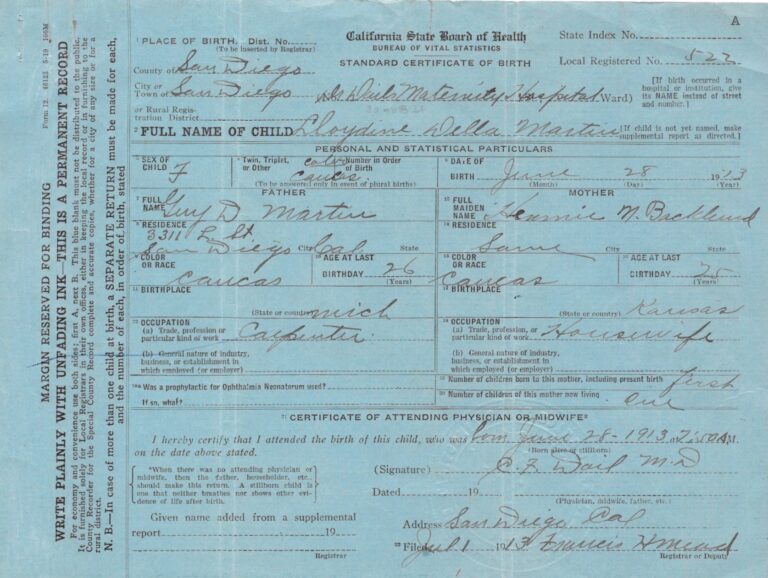 A
California State Board of Health
BUREAU OF VITAL STATISTICS
STANDARD CERTIFICATE OF BIRTH
State Index No.
Local Registered No. 522
[If birth occurred in a hospital or institution, give its NAME instead of street and number.]
1 PLACE OF BIRTH. Dist. No.
(To be inserted by Registrar)
County of San Diego
City or Town of San Diego
Maternity Hospital Ward)
or Rural Registration District
2 FULL NAME OF CHILD Lloydine Della Martin
[If child is not yet named, make supplemental report as directed.]
PERSONAL AND STATISTICAL PARTICULARS
3 SEX OF CHILD F
4 Twin, Triplet, or Other
color
caucas
5 Number in Order of Birth
(To be answered only in event of plural births)
6 DATE OF BIRTH June 28 1913
(Month) (Day) (Year)
FATHER
7 FULL NAME Guy D Martin
8 RESIDENCE 3311 L St
San Diego City Cal State
9 COLOR OR RACE caucas
10 AGE AT LAST BIRTHDAY 26 (Years)
11 BIRTHPLACE
(State or country) mich
12 OCCUPATION
(a) Trade, profession or particular kind of work Carpenter
(b) General nature of industry, business, or establishment in which employed (or employer)
MOTHER
13 FULL MAIDEN NAME N. Backlund
14 RESIDENCE
Same City State
15 COLOR OR RACE caucas
16 AGE AT LAST BIRTHDAY 25 (Years)
17 BIRTHPLACE
(State or country) Kansas
18 OCCUPATION
(a) Trade, profession, or particular kind of work Housewife
(b) General nature of industry, business, or establishment in which employed (or employer)
19a Was a prophylactic for Ophthalmia Neonatorum used?
If so, what?
19 Number of children born to this mother, including present birth first
20 Number of children of this mother now living one
21 CERTIFICATE OF ATTENDING PHYSICIAN OR MIDWIFE*
I hereby certify that I attended the birth of this child, who was born June 28-1913, 7:50 A M.
on the date above stated.
(Born alive or stillborn)
{*When there was no attending physician or midwife, then the father, householder, etc., should make this return. A stillborn child is one that neither breathes nor shows other evidence of life after birth.}
(Signature) M.D
Dated 19
(Physician, midwife, father, etc.)
Given name added from a supplemental
report 19
Registrar
Address San Diego, Cal
22 Filed Jul 1 1913 Francis H Mead
Registrar or Deputy
MARGIN RESERVED FOR BINDING
WRITE PLAINLY WITH UNFADING INK—THIS IS A PERMANENT RECORD
N. B.—In case of more than one child at birth, a SEPARATE RETURN must be made for each,
and the number of each, in order of birth, stated